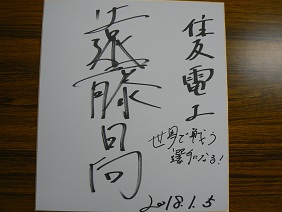 住友電工
遠藤日向
世界で戦う
選手になる!
2018.1.5